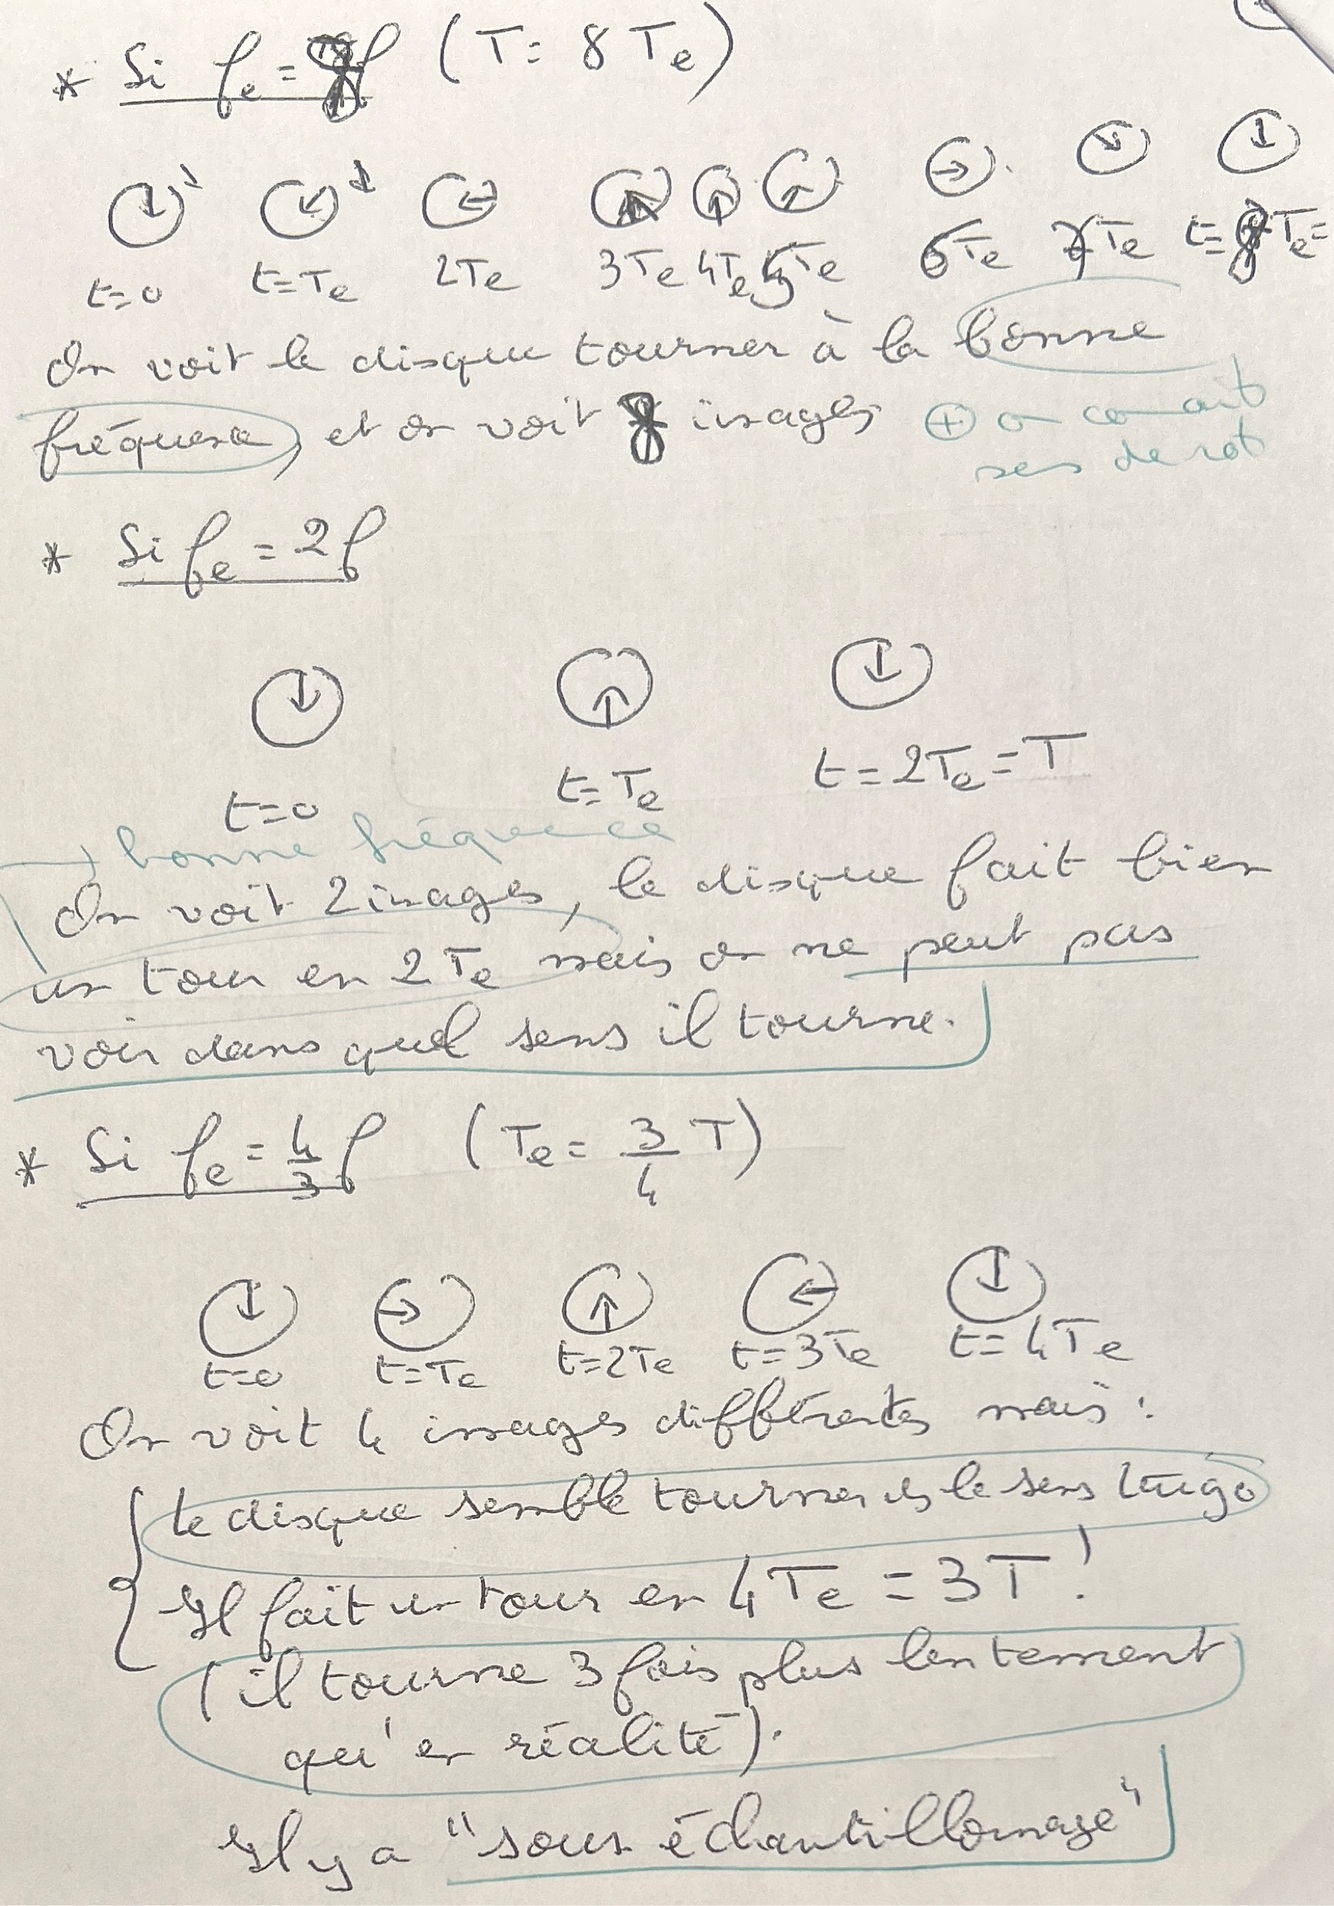 * Si fe = 8f (T = 8Te)
t=0 t=Te 2Te 3Te 4Te 5Te 6Te 7Te t=8Te=
On voit le disque tourner à la bonne
fréquence, et on voit 8 images ⊕ on connait
sens de rot
* Si fe = 2f
t=0 t=Te t=2Te=T
→ bonne fréquence
On voit 2 images, le disque fait bien
un tour en 2Te mais on ne peut pas
voir dans quel sens il tourne.
* Si fe = 4/3 f (Te = 3/4 T)
t=0 t=Te t=2Te t=3Te t=4Te
On voit 4 images différentes mais :
le disque semble tourner ds le sens trigo
Il fait un tour en 4Te = 3T !
(il tourne 3 fois plus lentement
qu'en réalité).
Il y a "sous échantillonnage"